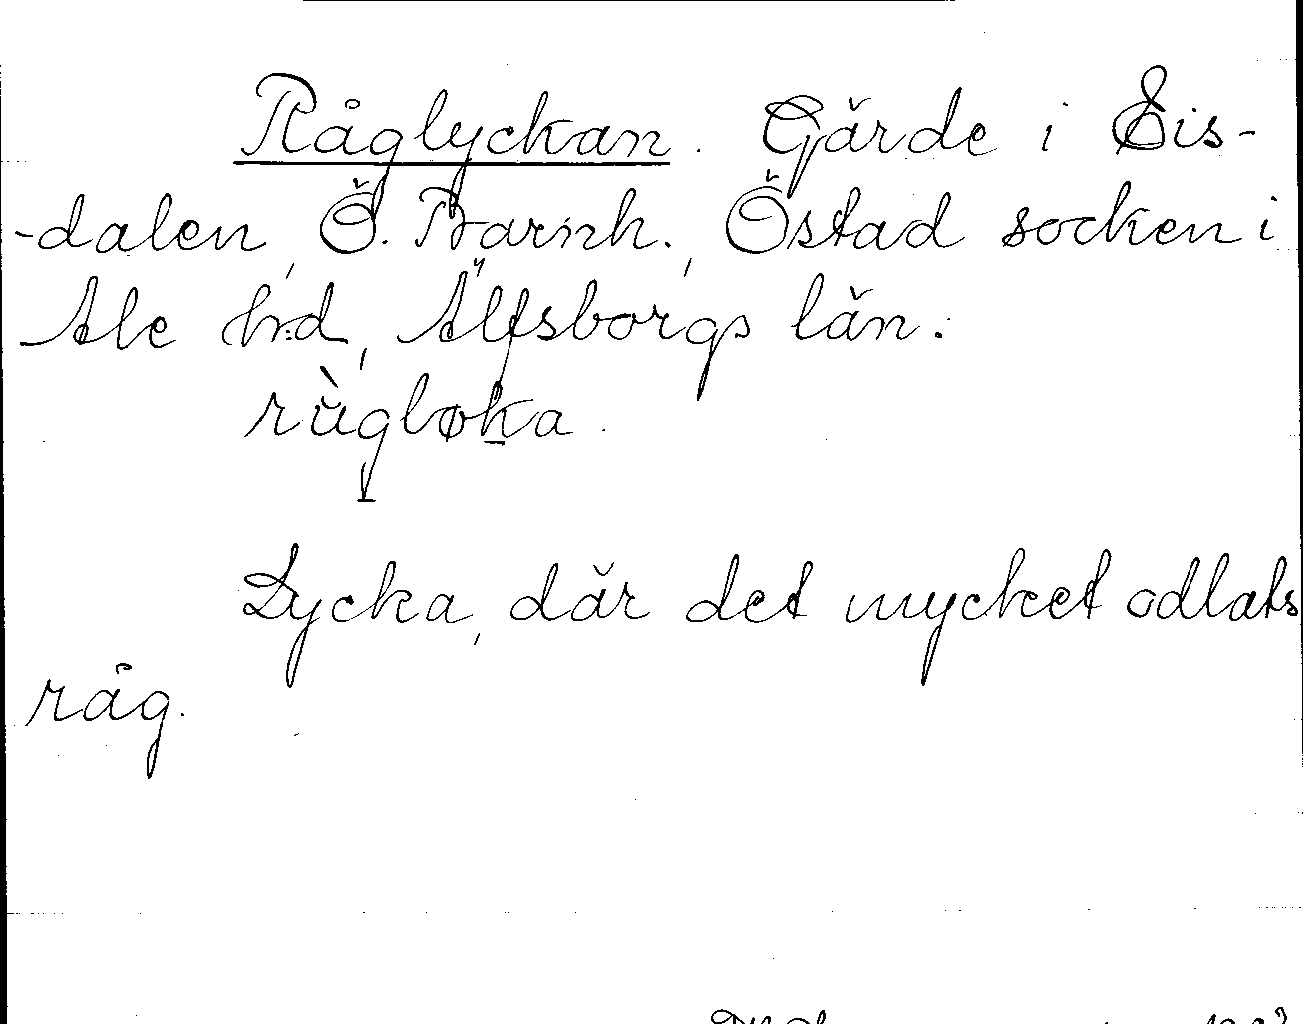 Råglyckan. Gärde i Eis-
-dalen, Ö. Barnh., Östad socken i
Ale hd, Älfsborgs län.
rùgløka.
Lycka, där det mycket odlats
råg.